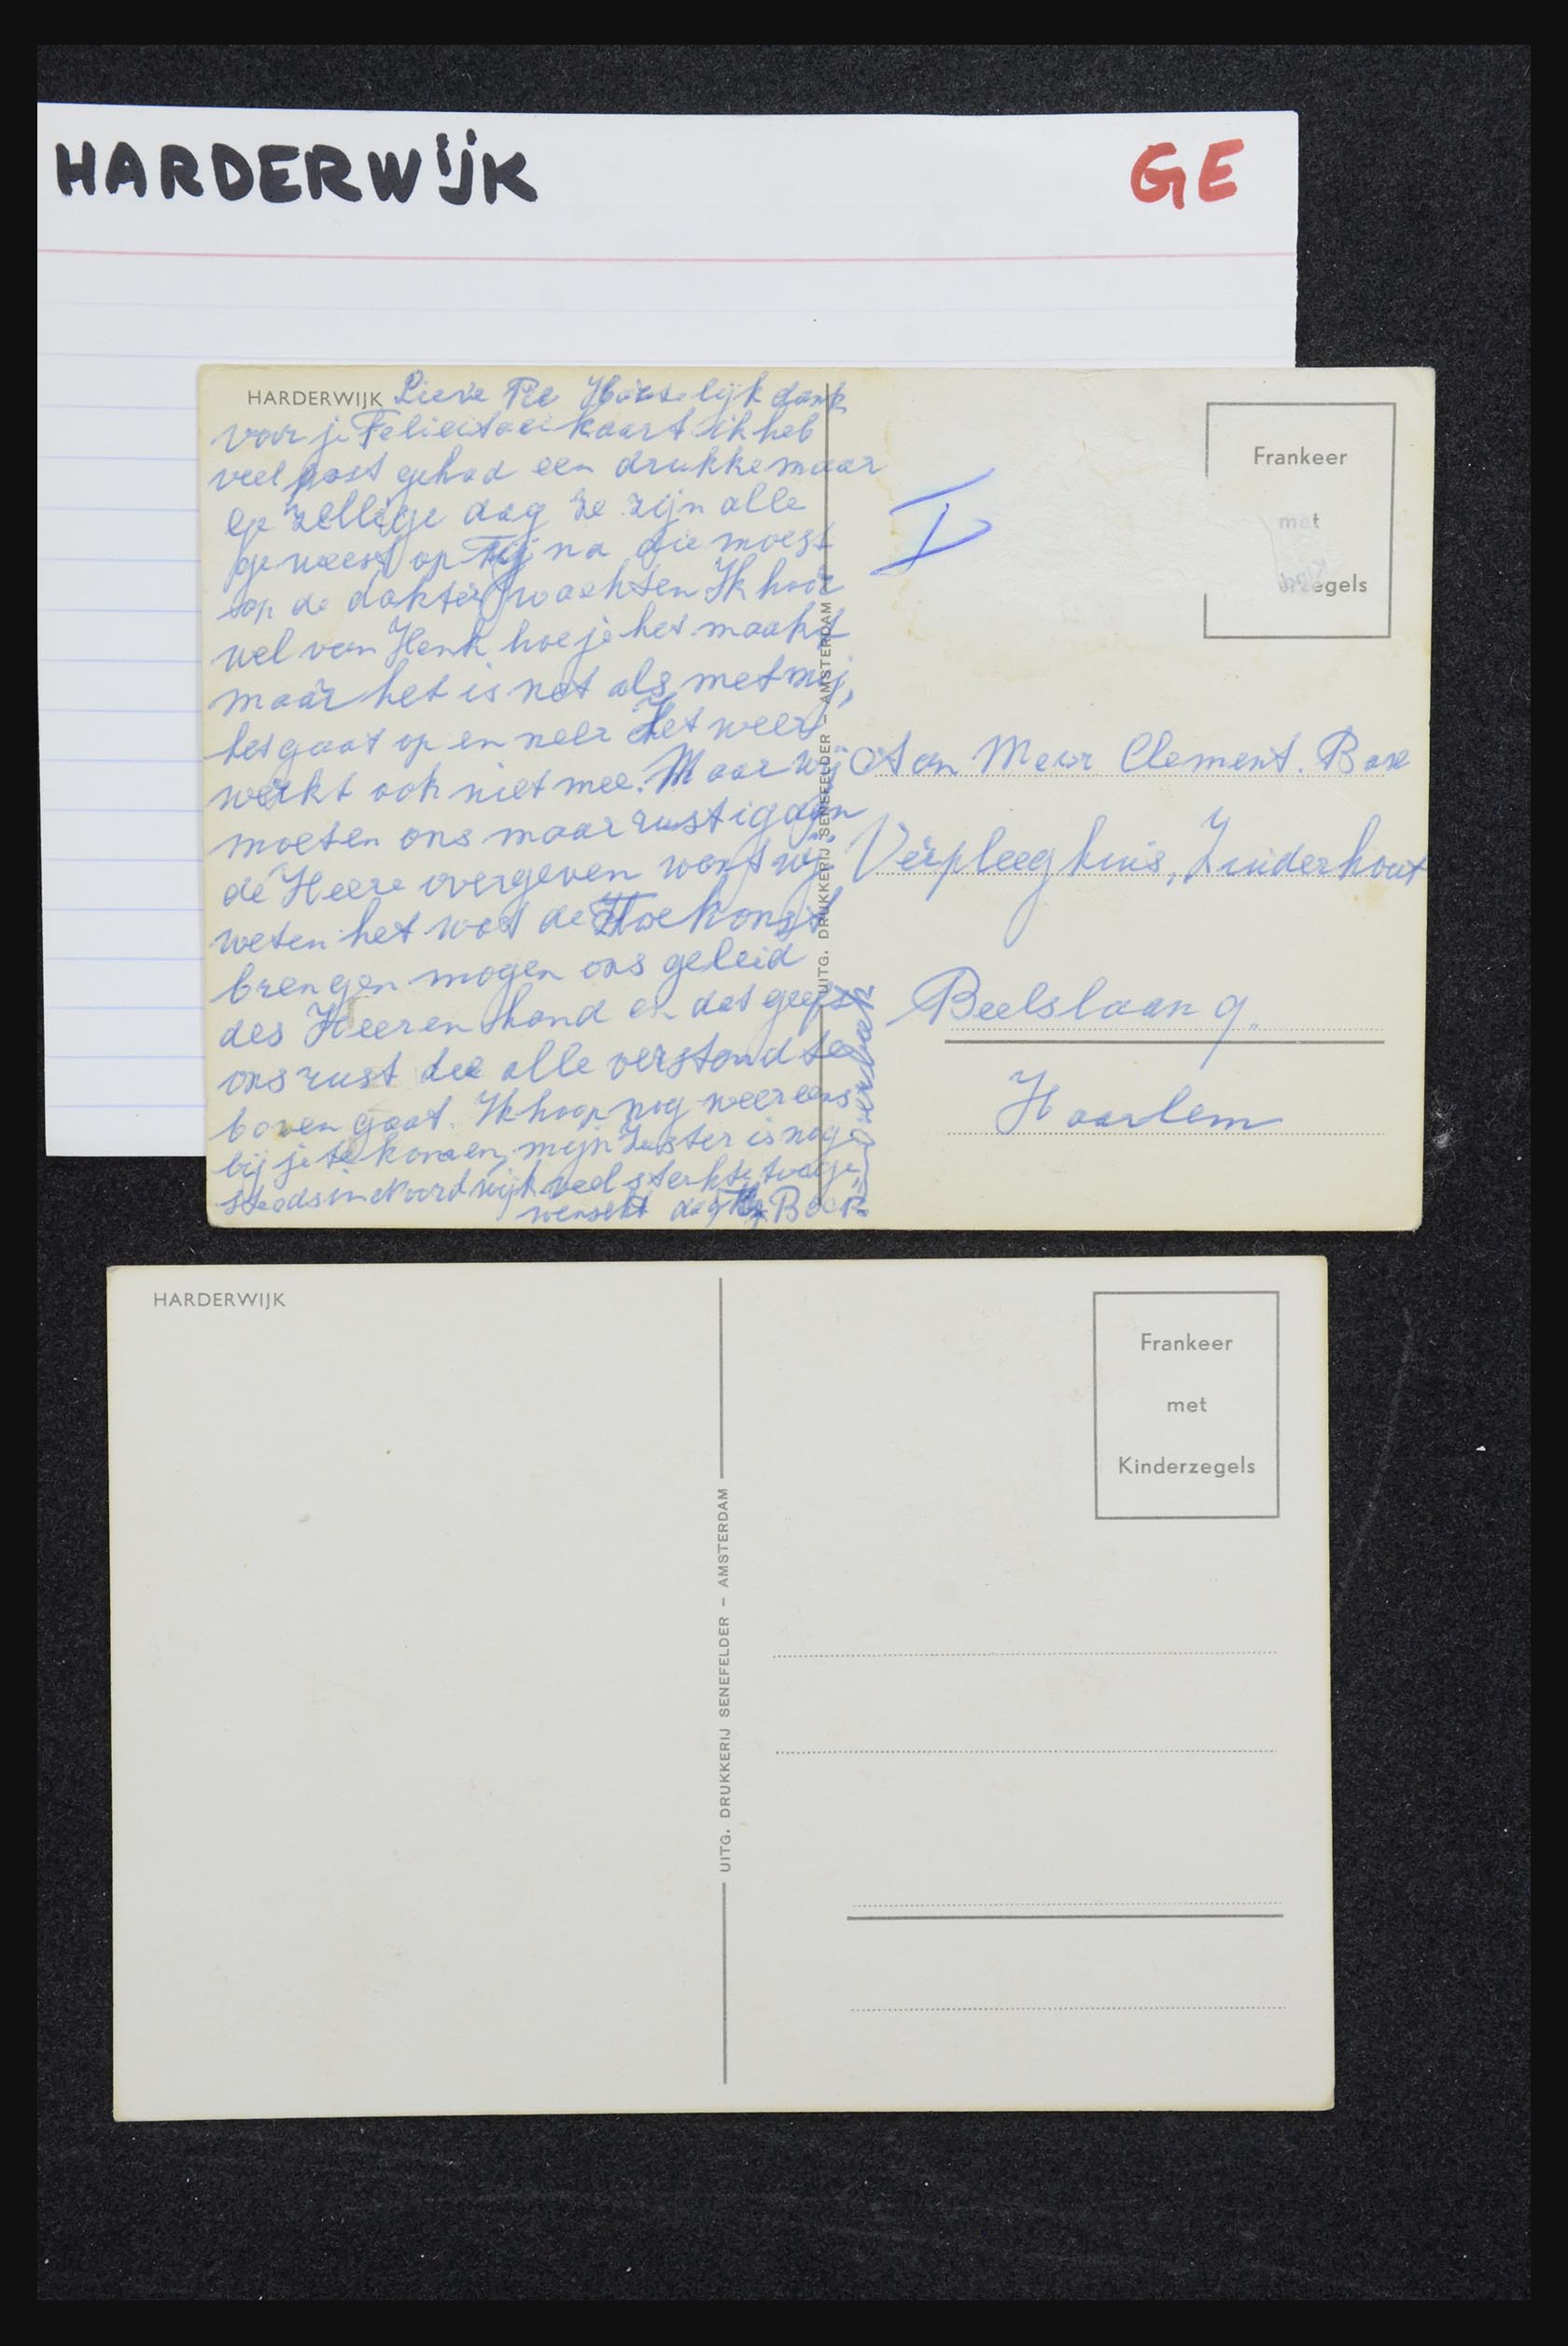 HARDERWIJK
GE
HARDERWIJK
Lieve Pie Hartelijk dank
voor je Felicitasi kaart ik heb
veel post gehad een drukke maar
zellige dag ze zijn alle
geweest op na die moest
op de dokter wachten Ik hoor
wel van Henk hoe je het maakt
maar het is net als met mij,
het gaat op en neer Het weer
werkt ook niet mee. Maar wij
moeten ons maar rustig aan
de Heere overgeven want wij
weten het wat de Toekomst
brengen mogen ons geleid
des Heeren hand en dat geeft
ons rust die alle verstand te
boven gaat. Ik hoop nog weer eens
bij je te komen, mijn Zuster is nog
steeds in Noordwijk veel sterkte toege
wenscht dag
Frankeer
met
egels
Aan Mevr Clement. Box
Verpleeghuis, Zuiderhout
Beelslaan 9.
Haarlem
UITG. DRUKKERIJ SENEFELDER – AMSTERDAM
HARDERWIJK
Frankeer
met
Kinderzegels
UITG. DRUKKERIJ SENEFELDER – AMSTERDAM